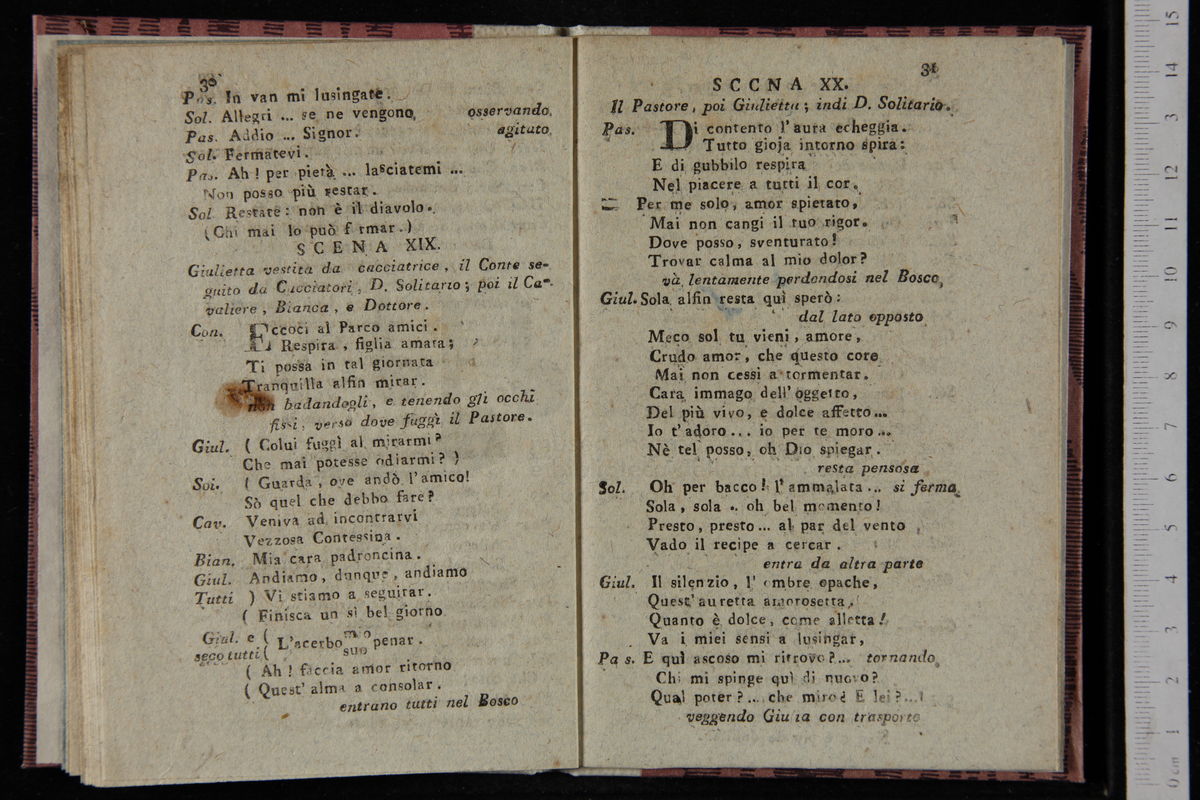 30
Pas. In van mi lusingate.
Sol. Allegri ... se ne vengono, osservando,
Pas. Addio ... Signor. agitato,
Sol. Fermatevi.
Pas. Ah! per pietà ... lasciatemi ...
Non posso più restar.
Sol. Restate: non è il diavolo.
(Chi mai lo può f rmar.)
SCENA XIX.
Giulietta vestita da cacciatrice, il Conte se-
guito da Cacciatori, D. Solitario; poi il Ca-
valiere, Bianca, e Dottore.
Con. Eccoci al Parco amici.
Respira, figlia amata;
Ti possa in tal giornata
Tranquilla alfin mirar.
non badandogli, e tenendo gli occhi
fissi, verso dove fuggì il Pastore.
Giul. (Colui fuggì al mirarmi?
Che mai potesse odiarmi?)
Soi. (Guarda, ove andò l'amico!
Sò quel che debbo fare?
Cav. Veniva ad incontrarvi
Vezzosa Contessina.
Bian. Mia cara padroncina.
Giul. Andiamo, dunque, andiamo
Tutti ) Vi stiamo a seguitar.
( Finisca un sì bel giorno
Giul. e ( L'acerbo mio penar.
seco tutti ( suo
( Ah! faccia amor ritorno
( Quest' alma a consolar.
entrano tutti nel Bosco
31
SCCNA XX.
Il Pastore, poi Giulietta; indi D. Solitario.
Pas. Di contento l'aura echeggia.
Tutto gioja intorno spira:
E di gubbilo respira
Nel piacere a tutti il cor.
Per me solo, amor spietato,
Mai non cangi il tuo rigor.
Dove posso, sventurato!
Trovar calma al mio dolor?
và lentamente perdendosi nel Bosco,
Giul. Sola alfin resta quì sperò:
dal lato opposto
Meco sol tu vieni, amore,
Crudo amor, che questo core
Mai non cessi a tormentar.
Cara immago dell' oggetto,
Del più vivo, e dolce affetto...
Io t'adoro... io per te moro...
Nè tel posso, oh Dio spiegar.
resta pensosa
Sol. Oh per bacco! l'ammalata ... si ferma,
Sola, sola .. oh bel momento!
Presto, presto... al par del vento
Vado il recipe a cercar.
entra da altra parte
Giul. Il silenzio, l' ombre opache,
Quest' auretta amorosetta,
Quanto è dolce, come alletta!
Va i miei sensi a lusingar,
Pas. E quì ascoso mi ritrovo?... tornando,
Chi mi spinge quì di nuovo?
Qual poter?... che miro? E lei?...
veggendo Giu ia con trasporto